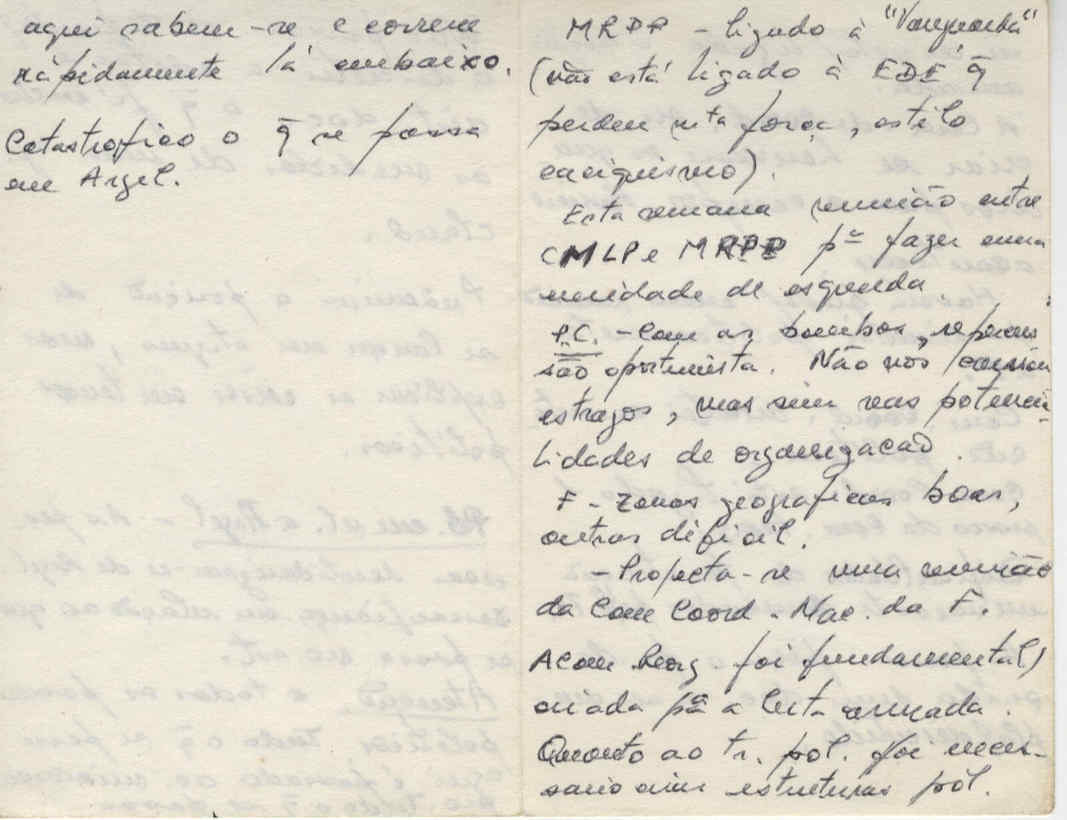 aqui sabem-se e correm
rápidamente lá embaixo.
Catastrofico o q̄ se passa
em Argel.
MRPP - ligado à "Vanguarda"
(não está ligado à EDE q̄
perdeu mta força, estilo
caciquismo).
Esta semana reunião entre
CMLP e MRPP pa fazer uma
unidade de esquerda.
P.C. - Com as bombas,
são oportunista. Não nos causam
estragos, mas sim nas potencia-
lidades de organização.
F - Zonas geograficas boas,
outras dificil.
- Projecta-se uma reunião
da Com Coord. Nac. da F.
A com. Reorg foi fundamental/
criada pa a luta armada.
Quanto ao tr. pol. foi neces-
sario criar estruturas pol.